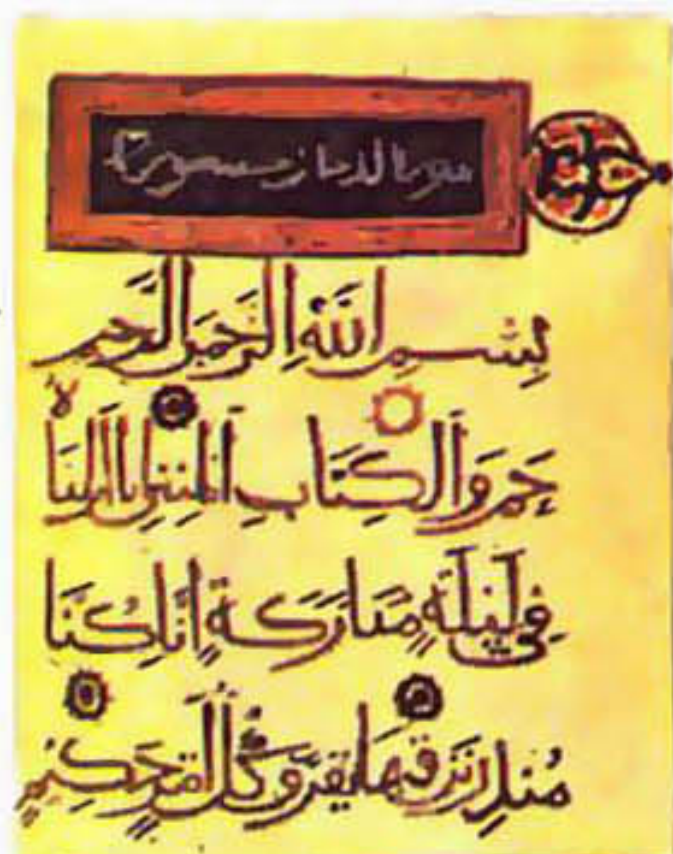 سورة الدخان
بِسْمِ اللهِ الرَّحْمَنِ الرَّحِيمِ
حم وَالْكِتَابِ الْمُبِينِ إِنَّا أَنْزَلْنَاهُ
فِي لَيْلَةٍ مُبَارَكَةٍ إِنَّا كُنَّا
مُنْذِرِينَ فِيهَا يُفْرَقُ كُلُّ أَمْرٍ حَكِيمٍ